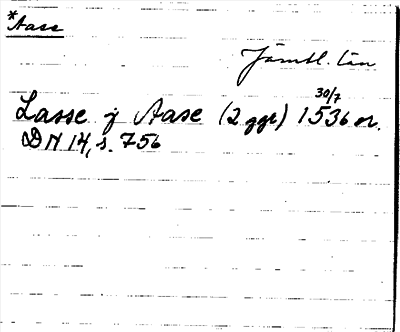 *Aase
Jämtl. län
Lasse j Aase (2 ggr) 30/7 1536 or.
DN 14, s. 756